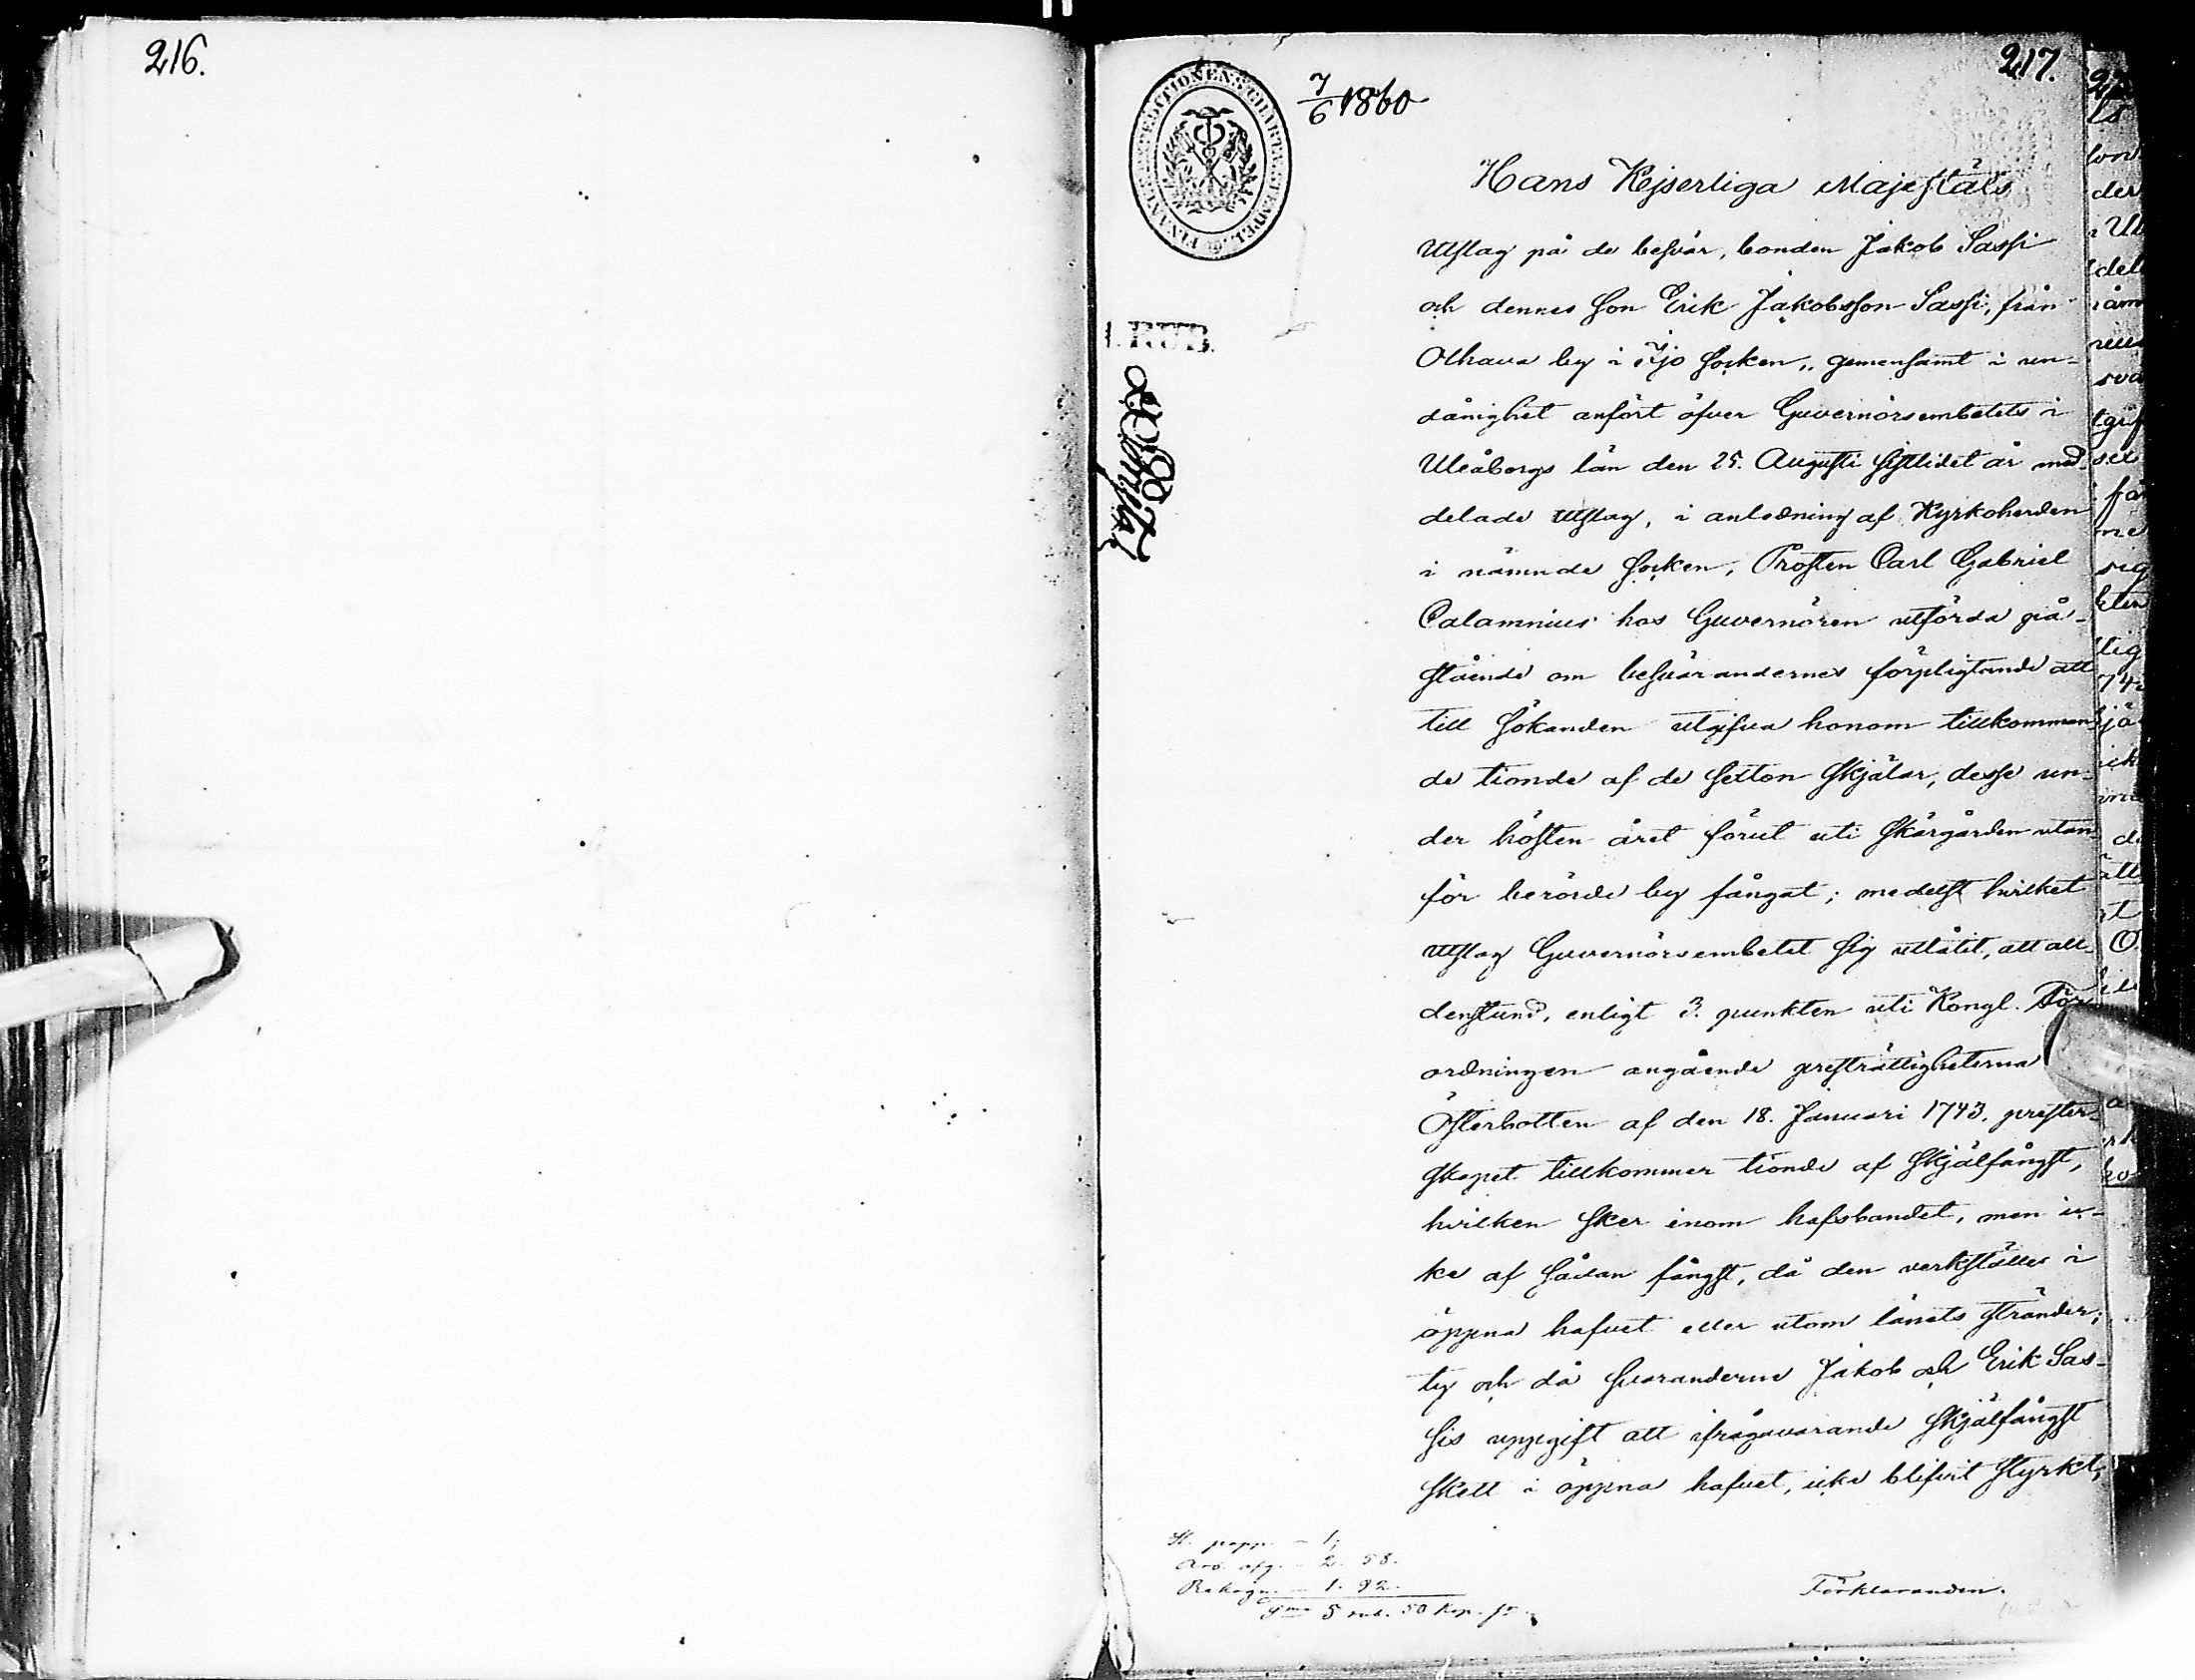 216.
217.
7/6 1860
FINANS EXPEDITIONENS CHARTÆ STEMPEL
1. RUB.
Hans Kejserliga Majestäts
Utslag på de besvär, bonden Jakob Sassi
och dennes son Erik Jakobsson Sassi, från
Olhava by i Ijo socken, gemensamt i un-
dånighet anfört öfver Guvernörsembetets i
Uleåborgs län den 25. Augusti sistlidet år med-
delade utslag, i anledning af Kyrkoherden
i nämnde socken, Prosten Carl Gabriel
Calamnius hos Guvernören utförda på-
stående om besvärandernes förpligtande att
till sökanden utgifva honom tillkomman-
de tionde af de sexton skjälar, desse un-
der hösten året förut uti skärgården utan-
för berörde by fångat; medelst hvilket
utslag Guvernörsembetet sig utlåtit, att all-
denstund, enligt 3. punkten uti Kongl. För-
ordningen angående presträttigheterna
Österbotten af den 18. Januari 1743. prester-
skapet tillkommer tionde af skjälfångst,
hvilken sker inom hafsbandet, men ic-
ke af sådan fångst, då den verkställes i
öppna hafvet eller utom länets stränder;
ty och då svaranderne Jakob och Erik Sas-
sis uppgift att ifrågavarande skjälfångst
skett i öppna hafvet, icke blifvit styrkt,
Förklaranden.
St. papp. - 1.
Arb. afg. - 2. 58.
Rekogn. - 1. 92.
S:ma 5 rub. 50 kop. sr